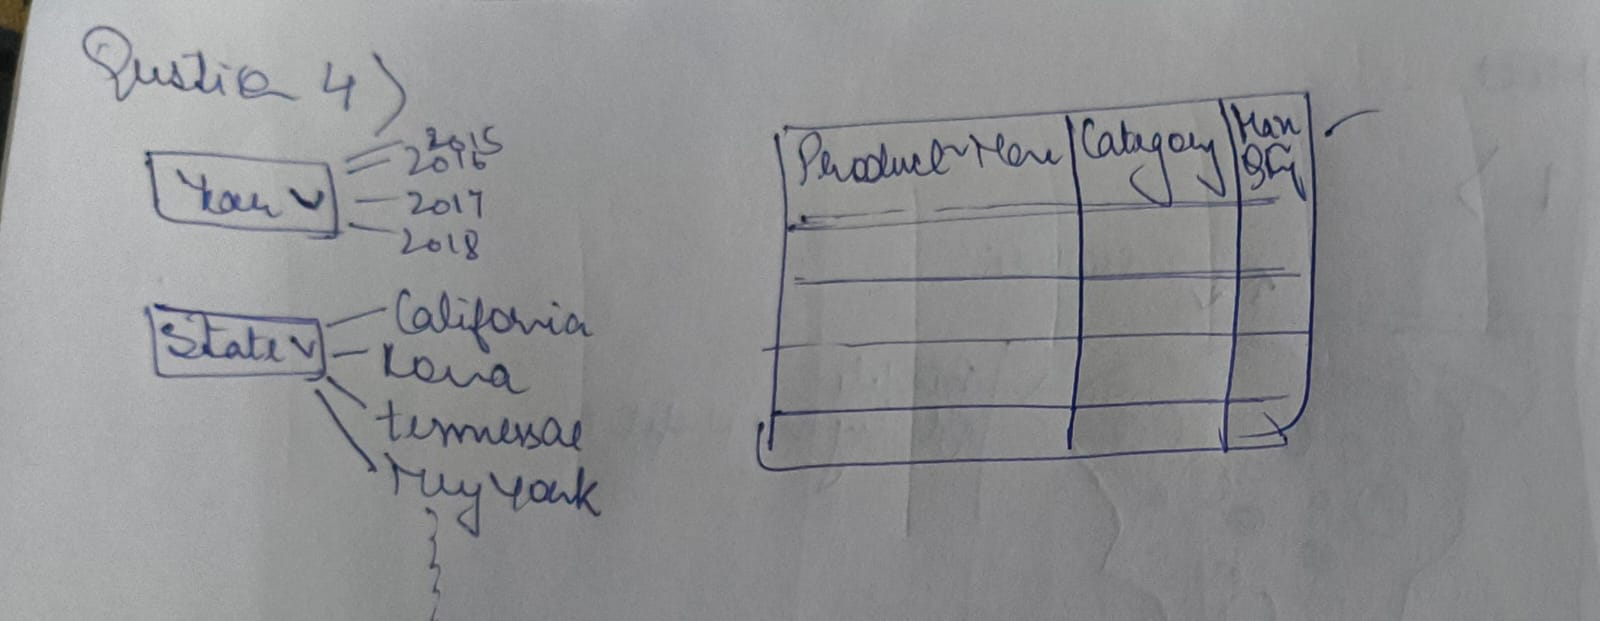 Question 4)
Year
2015
2016
2017
2018
State
California
Iowa
tennessae
New York
Product Name
Category
Max
Qty